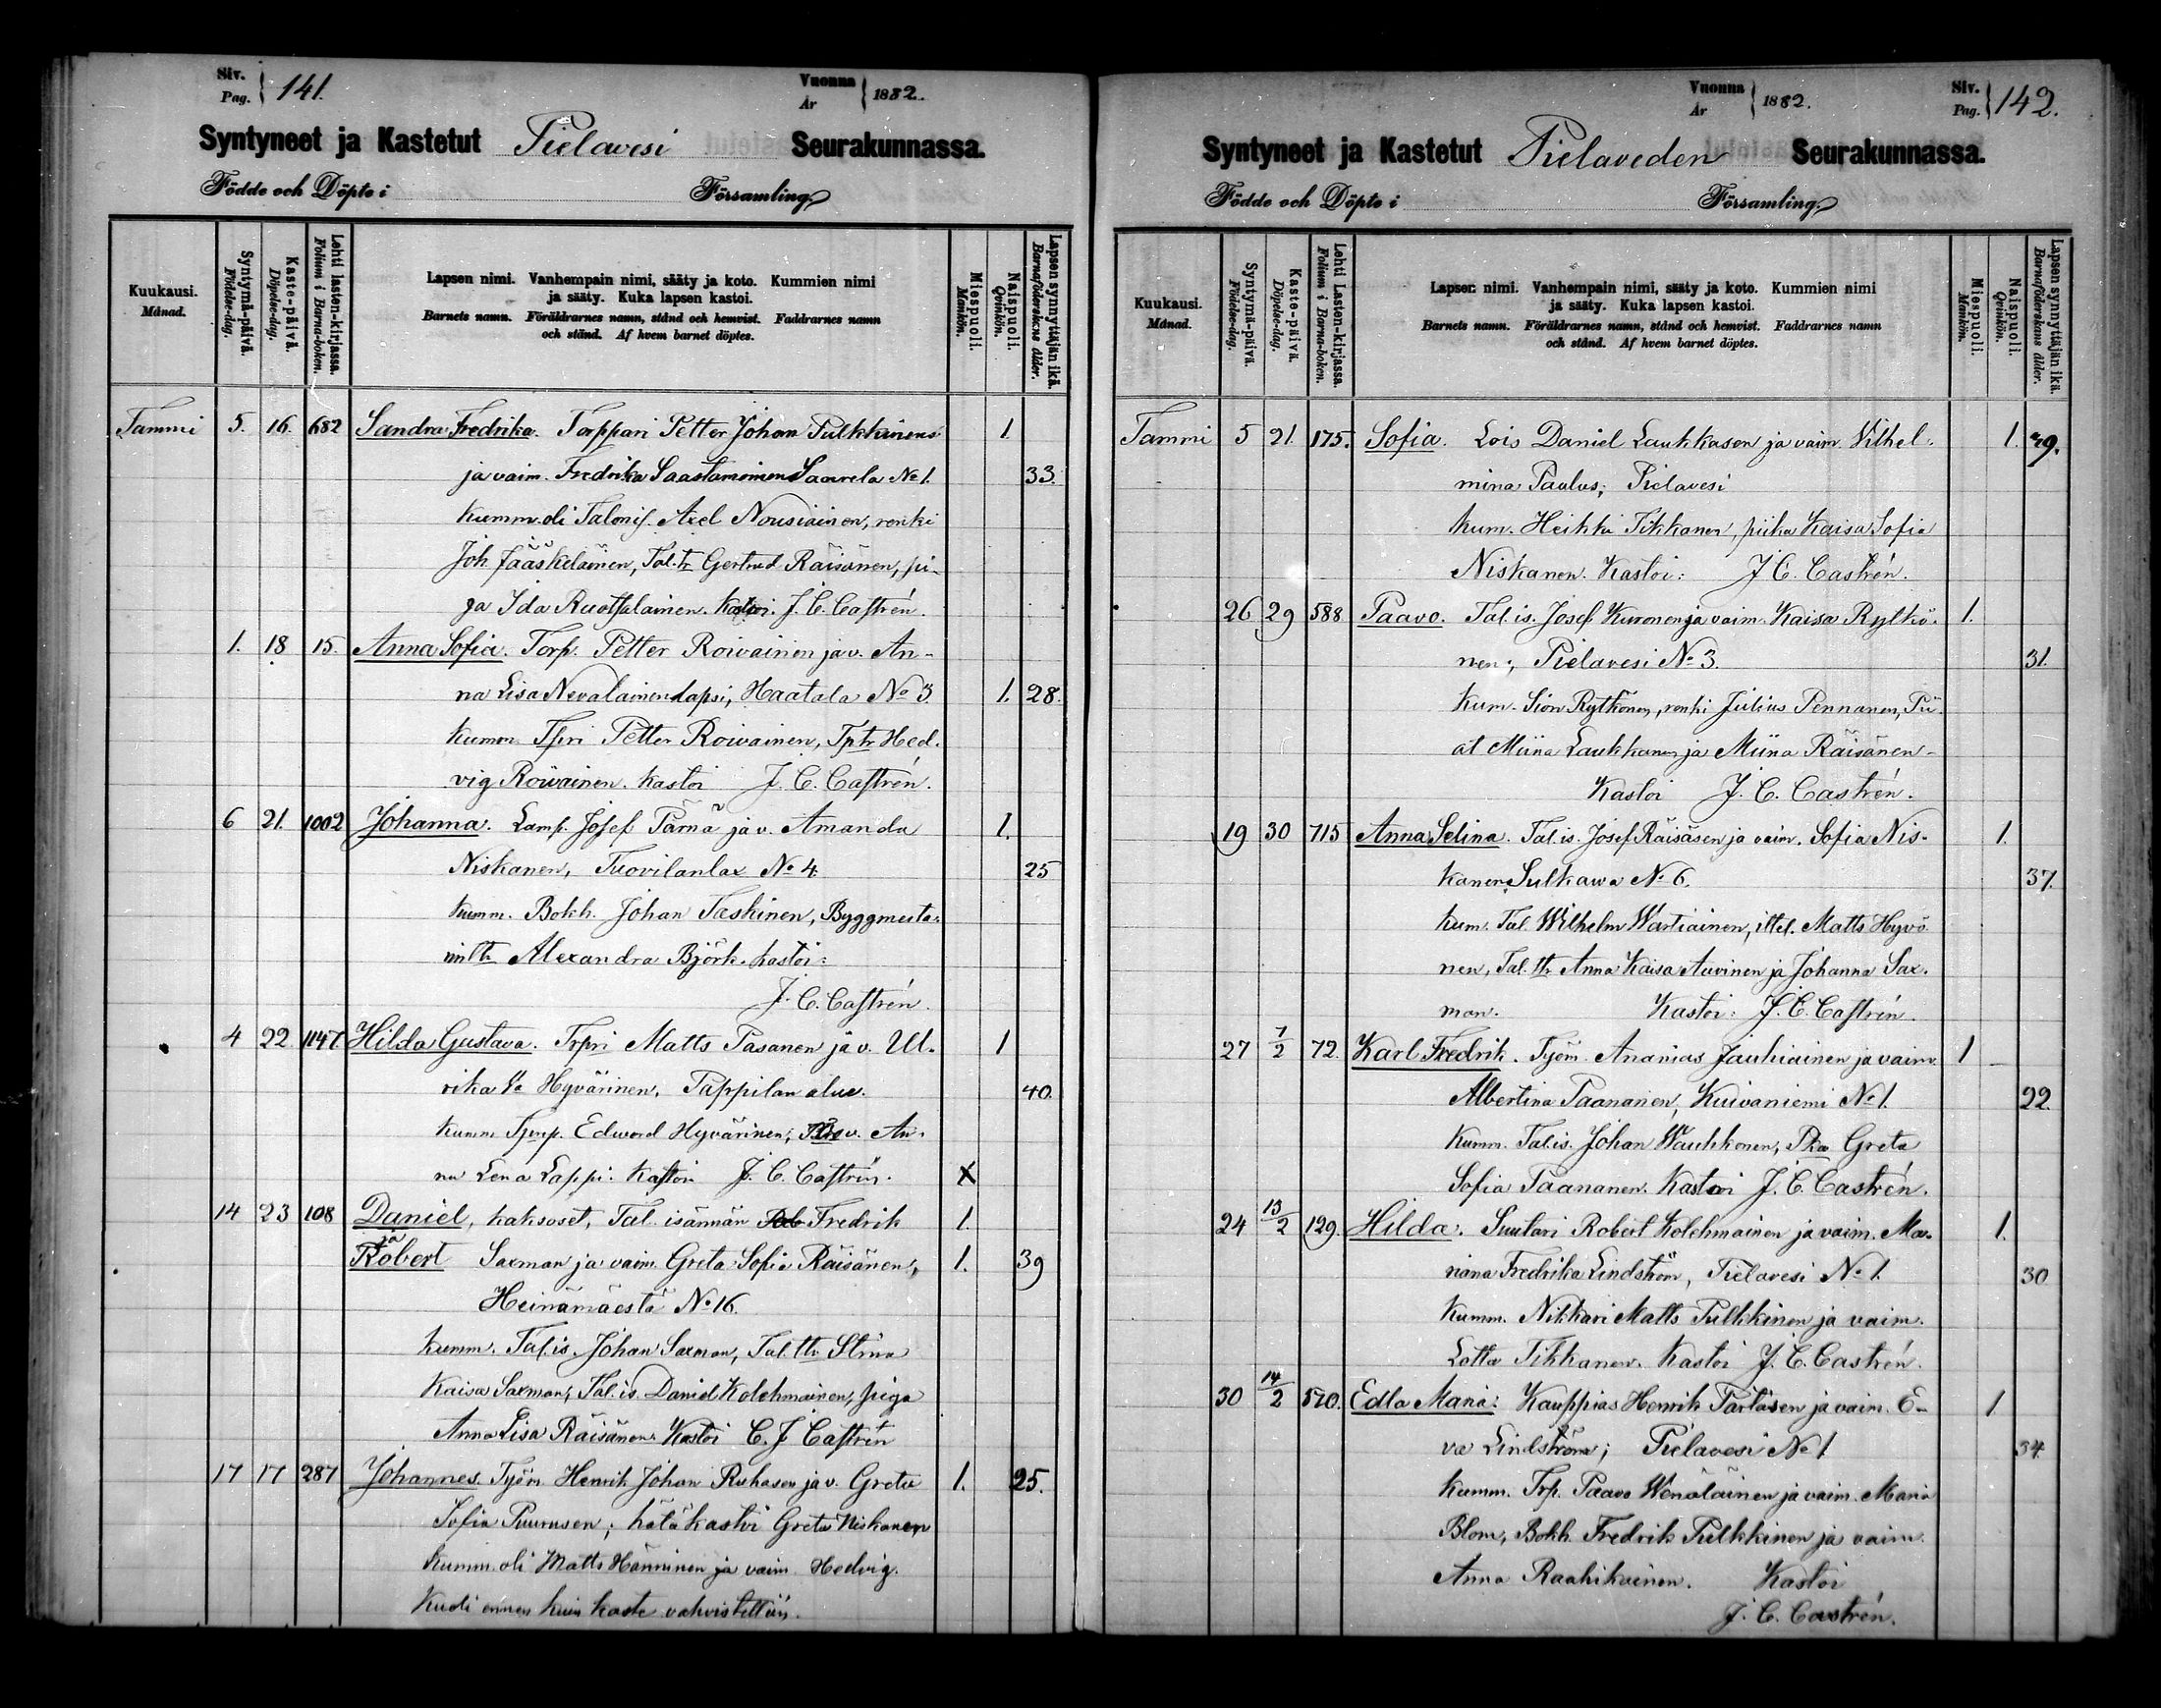 Siv. Pag. 141.
Vuonna År 1882.
Syntyneet ja Kastetut Pielavesi Seurakunnassa.
Födde och Döpte i Församling.
Kuukausi. Månad.
Syntymä-päivä. Födelse-dag.
Kaste-päivä. Döpelse-dag.
Lehti lasten-kirjassa. Folium i Barna-boken.
Lapsen nimi. Vanhempain nimi, sääty ja koto. Kummien nimi
ja sääty. Kuka lapsen kastoi.
Barnets namn. Föräldrarnes namn, stånd och hemvist. Faddrarnes namn
och stånd. Af hvem barnet döptes.
Miespuoli. Mankön.
Naispuoli. Qvinkön.
Lapsen synnyttäjän ikä. Barnaföderskans ålder.
Tammi 5. 16. 682 Sandra Fredrika. Torppari Petter Johan Pulkkinens 1.
ja vaim. Fredrika Saastamoinen Saarela No 1. 33.
kumm. oli Axel Nousiainen, renki
Joh Jääskeläinen, Tal.tr Gertrud Räisänen, pi-
ga Ida Ruotsalainen. Kastoi. J. C. Castrén.
1. 18 15. Anna Sofia. Torp. Petter Roivainen ja v. An-
na Lisa Nevalainen lapsi, Haatala No 3. 1. 28.
kumm. Petter Roivainen, Tptr Hed-
vig Roivainen. kastoi J. C. Castrén.
6 21. 1002 Johanna. Lamp. Josef Pärnä ja v. Amanda 1.
Niskanen, Tuovilanlax No 4. 25
kumm. Bokh. Johan Taskinen,
Alexandra Björk. kastoi:
J. C. Castrén.
4 22. 1147. Hilda Gustava. Trpri Matts Pasanen ja v. Ul- 1
rika Hyvärinen, Tappilan alue. 40.
kumm. Edward Hyvärinen, v. An-
na Lena Lappi. Kastoi J. C. Castrén. X
14 23 108 Daniel, kaksoset, Tal. isännän Fredrik 1.
ja
Robert Saxman ja vaim. Greta Sofia Räisänen, 1. 39
Heinämäestä No 16.
kumm. Tal.is. Johan Saxman, Tal.ttr Stina
Kaisa Saxman, Tal.is. Daniel Kolehmainen, piga
Anna Lisa Räisänen. Kastoi C. J Castrén
17 17 287 Johannes. Työm. Henrik Johan Ruhasen ja v. Greta 1. 25.
Sofia Puurusen; hätäkastoi Greta Niskanen
kumm. oli Matts Hänninen ja vaim. Hedvig.
Kuoli ennen kuin kaste vahvistettiin.
Vuonna År 1882.
Siv. Pag. 142.
Syntyneet ja Kastetut Pielaveden Seurakunnassa.
Födde och Döpte i Församling.
Kuukausi. Månad.
Syntymä-päivä. Födelse-dag.
Kaste-päivä. Döpelse-dag.
Lehti Lasten-kirjassa. Folium i Barna-boken.
Lapsen nimi. Vanhempain nimi, sääty ja koto. Kummien nimi
ja sääty. Kuka lapsen kastoi.
Barnets namn. Föräldrarnes namn, stånd och hemvist. Faddrarnes namn
och stånd. Af hvem barnet döptes.
Miespuoli. Mankön.
Naispuoli. Qvinkön.
Lapsen synnyttäjän ikä. Barnaföderskans ålder.
Tammi 5 21. 175. Sofia. Lois Daniel Laukkasen ja vaim. Vilhel- 1. 29.
mina Paulus; Pielavesi
kum. Heikki Tikkanen, piika Kaisa Sofia
Niskanen. Kastoi: J. C. Castrén.
26 29 588 Paavo. Tal.is. Josef Kuronen ja vaim. Kaisa Rytkö- 1.
nen; Pielavesi No 3. 31.
kum. Rytkönen, renki Julius Pennanen, Pii-
at Miina Laukkanen ja Miina Räisänen-
Kastoi J. C. Castrén.
19 30 715 Anna Selina. Tal.is. Josef Räisäsen ja vaim. Sofia Nis- 1.
kanen, Sulkawa No 6. 37.
kum. Tal. Wilhelm Wartiainen, ittel. Matts Hyvö-
nen, Tal.ttr Anna Kaisa Auvinen ja Johanna Sax-
man. Kastoi: J. C. Castrén.
27 7/2 72. Karl Fredrik. Työm. Ananias Jauhiainen ja vaim. 1
Albertina Paananen, Kuivaniemi No 1. 22.
Kumm. Tal.is. Johan Wauhkonen, Pka Greta
Sofia Paananen. Kastoi J. C. Castrén.
24 13/2 129. Hilda. Suutari Robert Kolehmainen ja vaim. Ma- 1.
riana Fredrika Lindström, Pielavesi No 1. 30
Kumm. Nikkari Matts Pulkkinen ja vaim.
Lotta Tikkanen. Kastoi J. C. Castrén.
30 14/2 570. Edla Maria: Kauppias Henrik Partasen ja vaim. E- 1
va Lindström; Pielavesi No 1 34
Kumm. Trp. Paavo Wenäläinen ja vaim. Maria
Blom, Bokh. Fredrik Pulkkinen ja vaim.
Anna Raahikainen. Kastoi
J. C. Castrén.